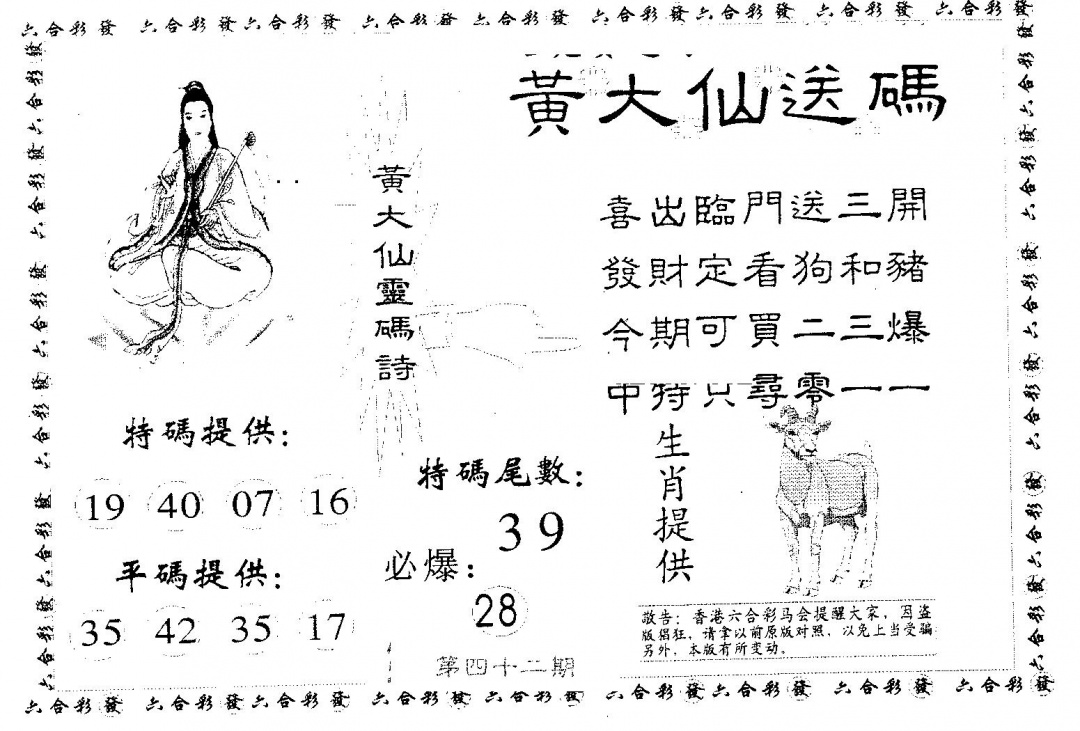 六合彩發 六合彩發六合彩發 六合彩發 六合彩發 六合彩發六合彩發 六合彩發 六合彩發
黃大仙送碼
黃大仙靈碼詩
喜出臨門送三開
發財定看狗和豬
今期可買二三爆
中特只尋零一一
特碼提供：
19 40 07 16
平碼提供：
35 42 35 17
特碼尾數：
39
必爆：
28
第四十二期
生肖提供
敬告：香港六合彩马会提醒大家，因盗
版猖狂，请拿以前原版对照，以免上当受骗
另外，本版有所变动。
六合彩發 六合彩發六合彩發 六合彩發 六合彩發 六合彩發六合彩發 六合彩發 六合彩發